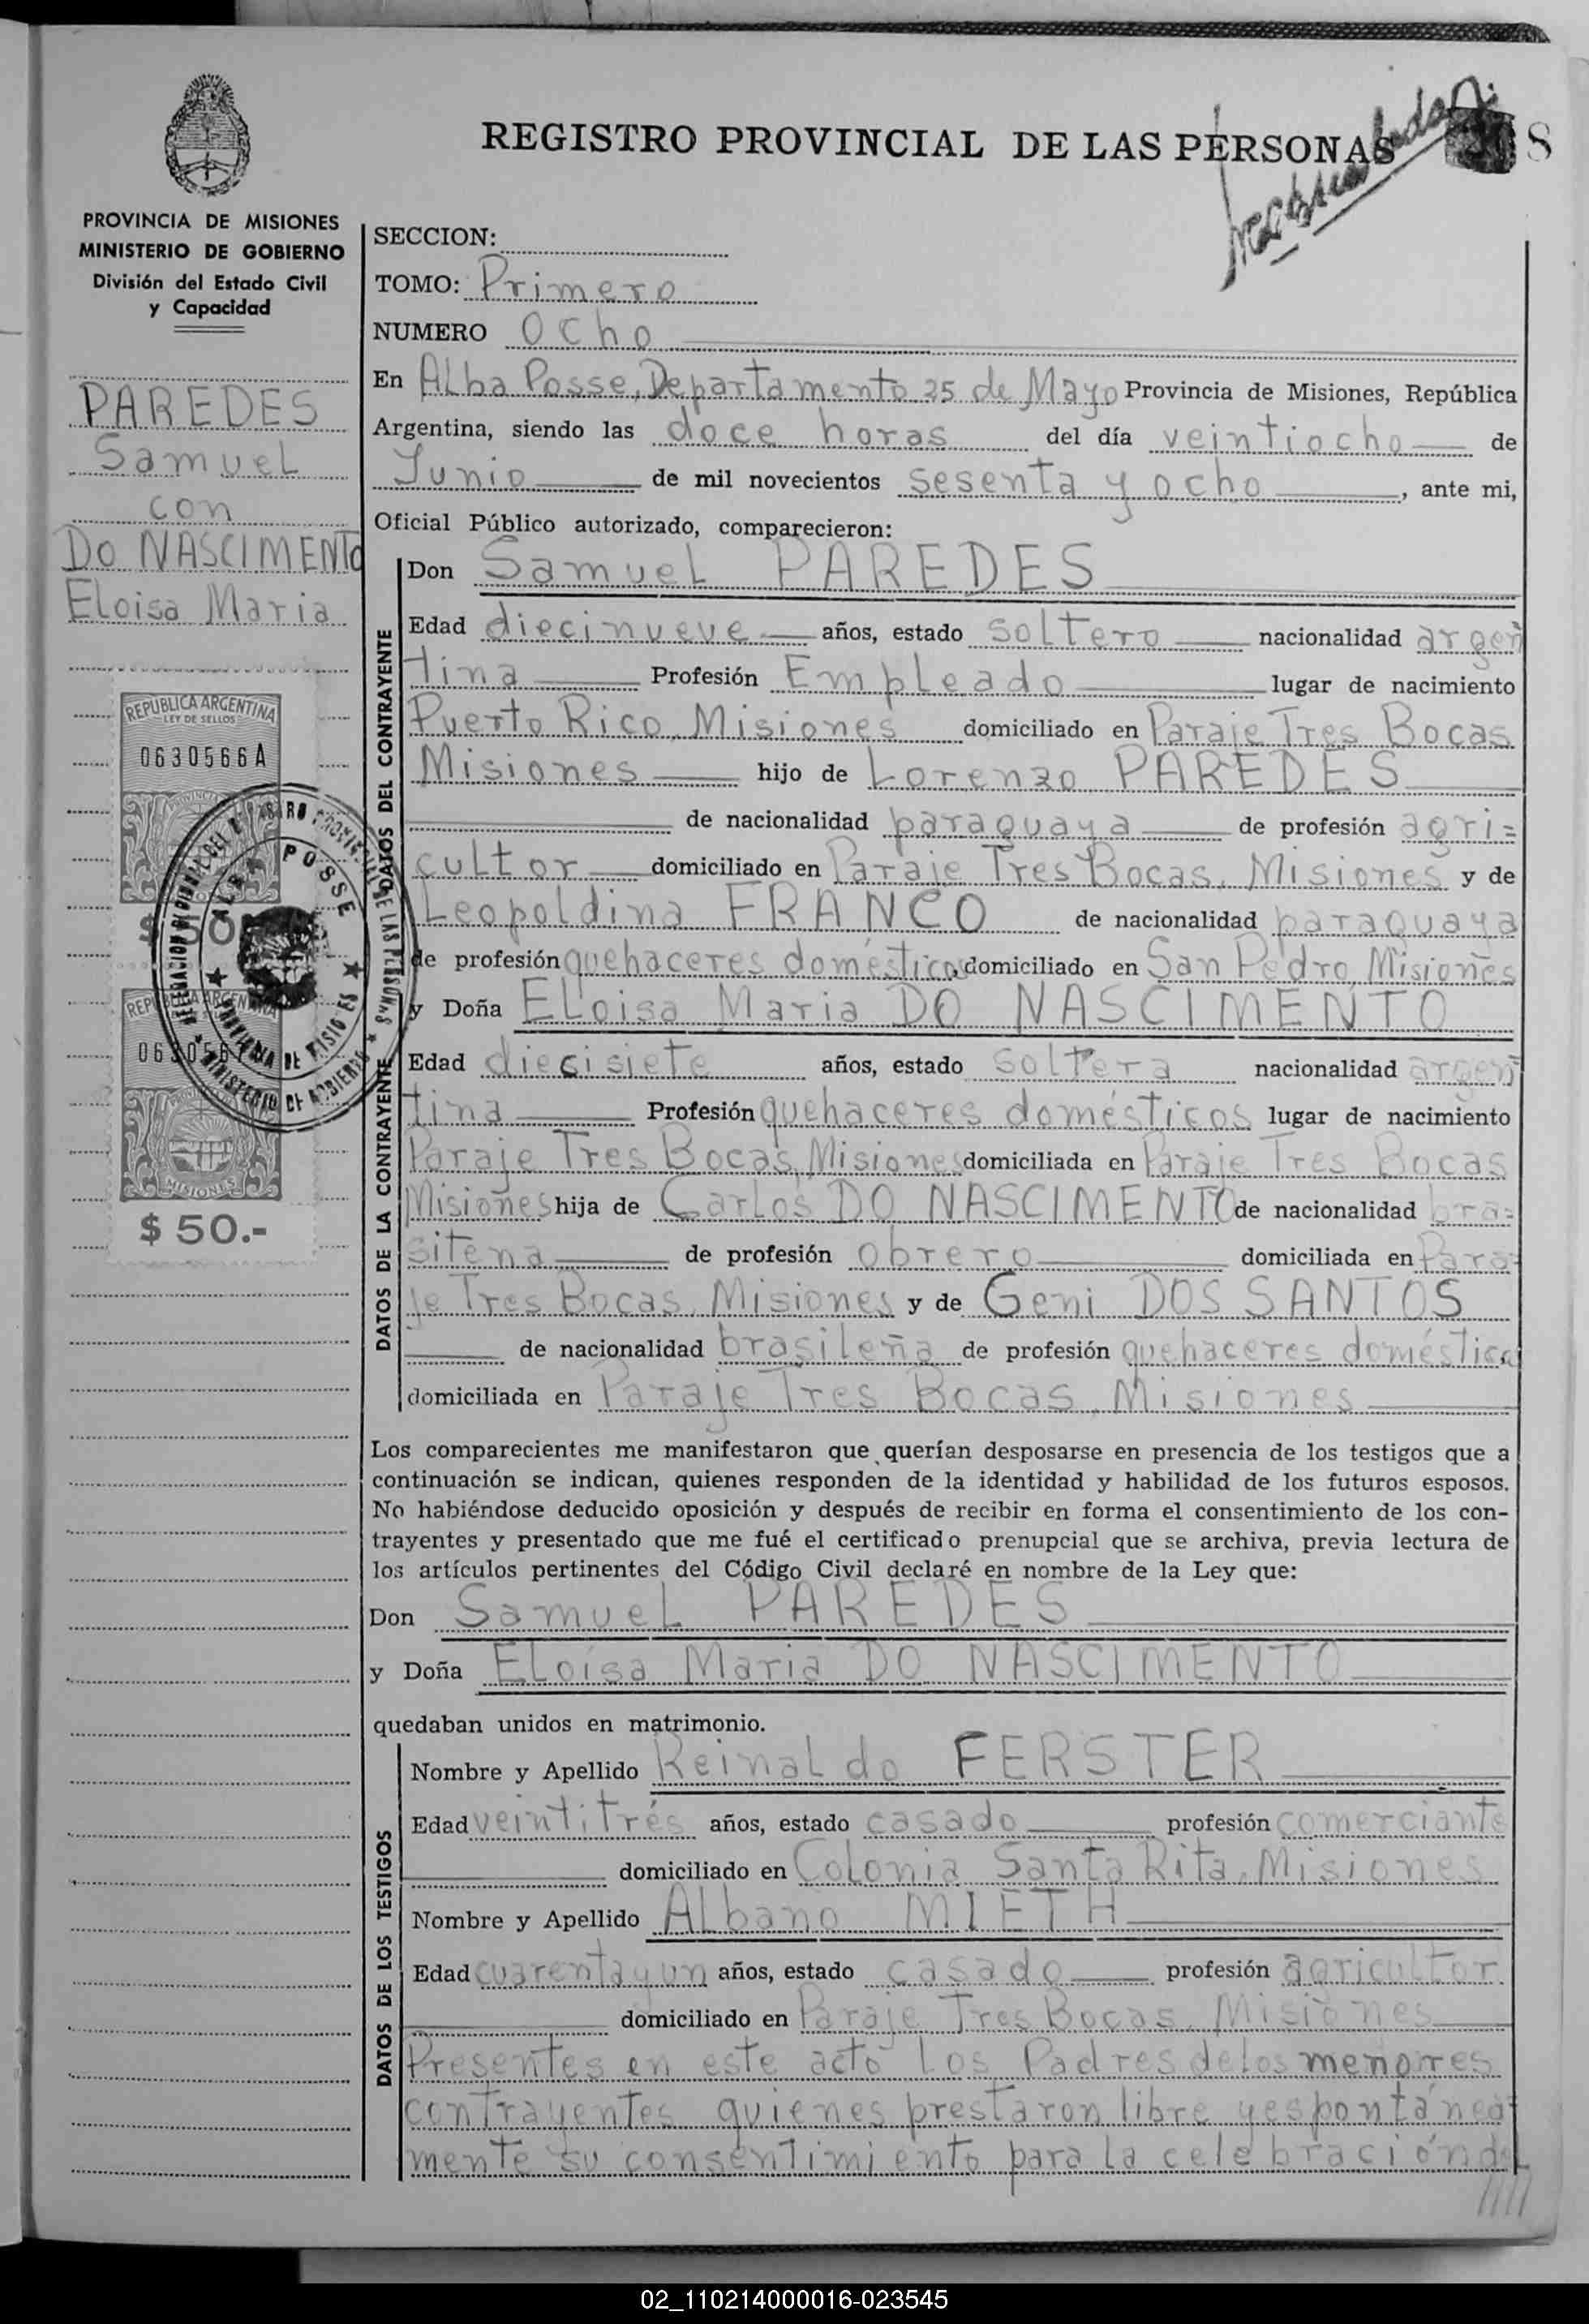 REGISTRO PROVINCIAL DE LAS PERSONAS
8
PROVINCIA DE MISIONES
MINISTERIO DE GOBIERNO
División del Estado Civil
y Capacidad
PAREDES
Samuel
con
Do NASCIMENTO
Eloisa Maria
REPUBLICA ARGENTINA
LEY DE SELLOS
0630566A
ALBA POSSE
PROVINCIA DE MISIONES
MINISTERIO DE GOBIERNO
MISIONES
$ 50.-
SECCION:
TOMO: Primero
NUMERO Ocho
En Alba Posse, Departamento 25 de Mayo Provincia de Misiones, República
Argentina, siendo las doce horas del día veintiocho de
Junio de mil novecientos sesenta y ocho, ante mi,
Oficial Público autorizado, comparecieron:
DATOS DEL CONTRAYENTE
Don Samuel PAREDES
Edad diecinueve años, estado soltero nacionalidad argen
tina Profesión Empleado lugar de nacimiento
Puerto Rico, Misiones domiciliado en Paraje Tres Bocas
Misiones hijo de Lorenzo PAREDES
de nacionalidad paraguaya de profesión agri=
cultor domiciliado en Paraje Tres Bocas, Misiones y de
Leopoldina FRANCO de nacionalidad paraguaya
de profesión quehaceres domésticos domiciliado en San Pedro Misiones
DATOS DE LA CONTRAYENTE
y Doña Eloisa Maria DO NASCIMENTO
Edad diecisiete años, estado soltera nacionalidad argen
tina Profesión quehaceres domésticos lugar de nacimiento
Paraje Tres Bocas, Misiones domiciliada en Paraje Tres Bocas
Misiones hija de Carlos DO NASCIMENTO de nacionalidad bra=
sileña de profesión obrero domiciliada en Para=
je Tres Bocas, Misiones y de Geni DOS SANTOS
de nacionalidad brasileña de profesión quehaceres domésticos
domiciliada en Paraje Tres Bocas, Misiones
Los comparecientes me manifestaron que querían desposarse en presencia de los testigos que a
continuación se indican, quienes responden de la identidad y habilidad de los futuros esposos.
No habiéndose deducido oposición y después de recibir en forma el consentimiento de los con-
trayentes y presentado que me fué el certificado prenupcial que se archiva, previa lectura de
los artículos pertinentes del Código Civil declaré en nombre de la Ley que:
Don Samuel PAREDES
y Doña Eloísa Maria DO NASCIMENTO
quedaban unidos en matrimonio.
DATOS DE LOS TESTIGOS
Nombre y Apellido Reinaldo FERSTER
Edad veintitrés años, estado casado profesión comerciante
domiciliado en Colonia Santa Rita, Misiones
Nombre y Apellido Albano MIETH
Edad cuarenta y un años, estado casado profesión agricultor
domiciliado en Paraje Tres Bocas, Misiones
Presentes en este acto los Padres de los menores
contrayentes quienes prestaron libre y espontánea
mente su consentimiento para la celebración de
02_110214000016-023545